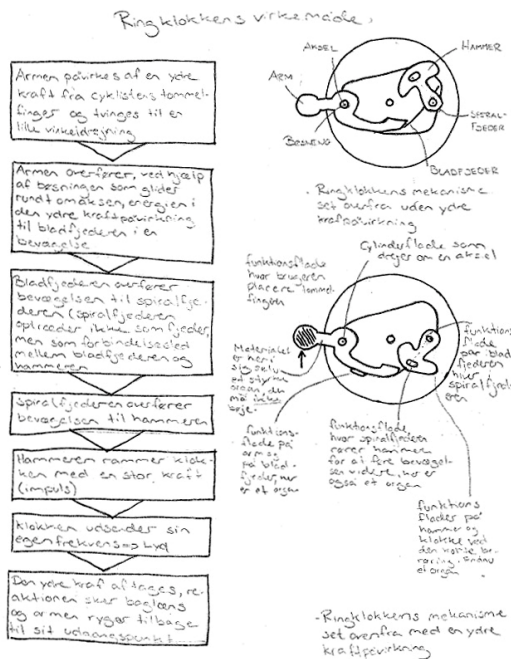 Ringklokkens virkemåde.
Armen påvirkes af en ydre
kraft fra cyklistens tommel-
finger og tvinges til en
lille vinkeldrejning
Armen overfører, ved hjælp
af bøsningen som glider
rundt om aksen, energien i
den ydre kraftpåvirkning
til bladfjederen i en
bevægelse
Bladfjederen overfører
bevægelsen til spiralfje-
deren (spiralfjederen
optræder ikke som fjeder,
men som forbindelsesled
mellem bladfjederen og
hammeren
Spiralfjederen overfører
bevægelsen til hammeren
Hammeren rammer klok-
ken med en stor kraft
(impuls)
Klokken udsender sin
egenfrekvens => Lyd
Den ydre kraf aftages, re-
aktionen sker baglæns
og armen ryger tilbage
til sit udgangspunkt
AKSEL
HAMMER
ARM
BØSNING
SPIRAL-
FJEDER
BLADFJEDER
- Ringklokkens mekanisme
set ovenfra uden ydre
krafpåvirkning
Cylinderflade som
drejer om en aksel
funktionsflade
hvor brugeren
placere tommel-
fingeren
Materialet
er men i
sig selv
på styrke
den
må ikke
bøje.
funktions-
flade på
arm og
på blad-
fjeder, her
er et organ
funktionsflade,
hvor spiralfjederen
rører hammeren
for at føre bevægel-
sen videre, her er
også et organ
funktions
flade
blad
fjederen
hiver
i spiralfjed
eren
funktions
flader på
hammer og
klokke ved
den korte be-
røring. Endnu
et organ
- Ringklokkens mekanisme
set ovenfra med en ydre
kraftpåvirkning